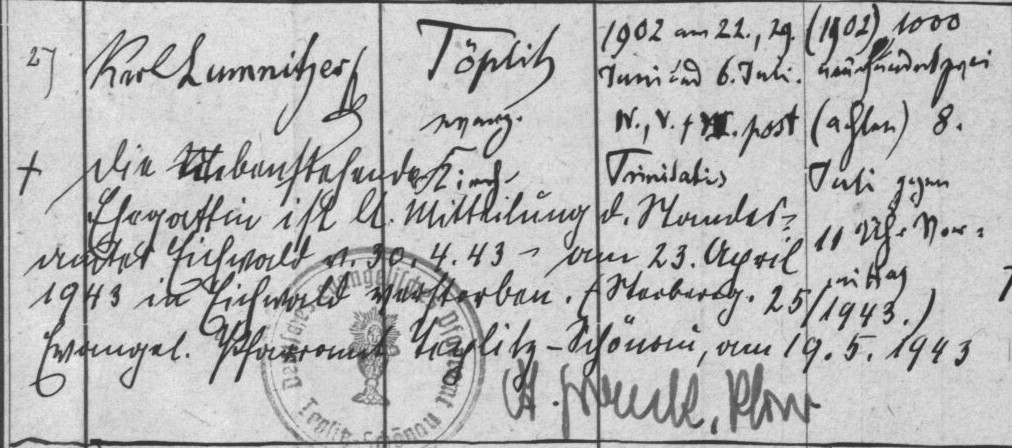 27
Karl Lumnitzer
Töplitz
evang.
Kirch.
1902 am 22., 29.
Juni und 6. Juli.
IV., V. + VI. post
Trinitatis
(1902) 1000
neunhundertzwei
(achten) 8.
Juli gegen
11 Uhr Vor=
mittag
+ Die Nebenstehende
Ehegattin ist lt. Mitteilung d. Standes=
amtes Eichwald v. 30. 4. 43 – am 23. April
1943 in Eichwald verstorben. (Sterbereg. 25/1943.)
Evangel. Pfarramt Teplitz-Schönau, am 19. 5. 1943
Deutsches Evangelisches Pfarramt
Teplitz-Schönau